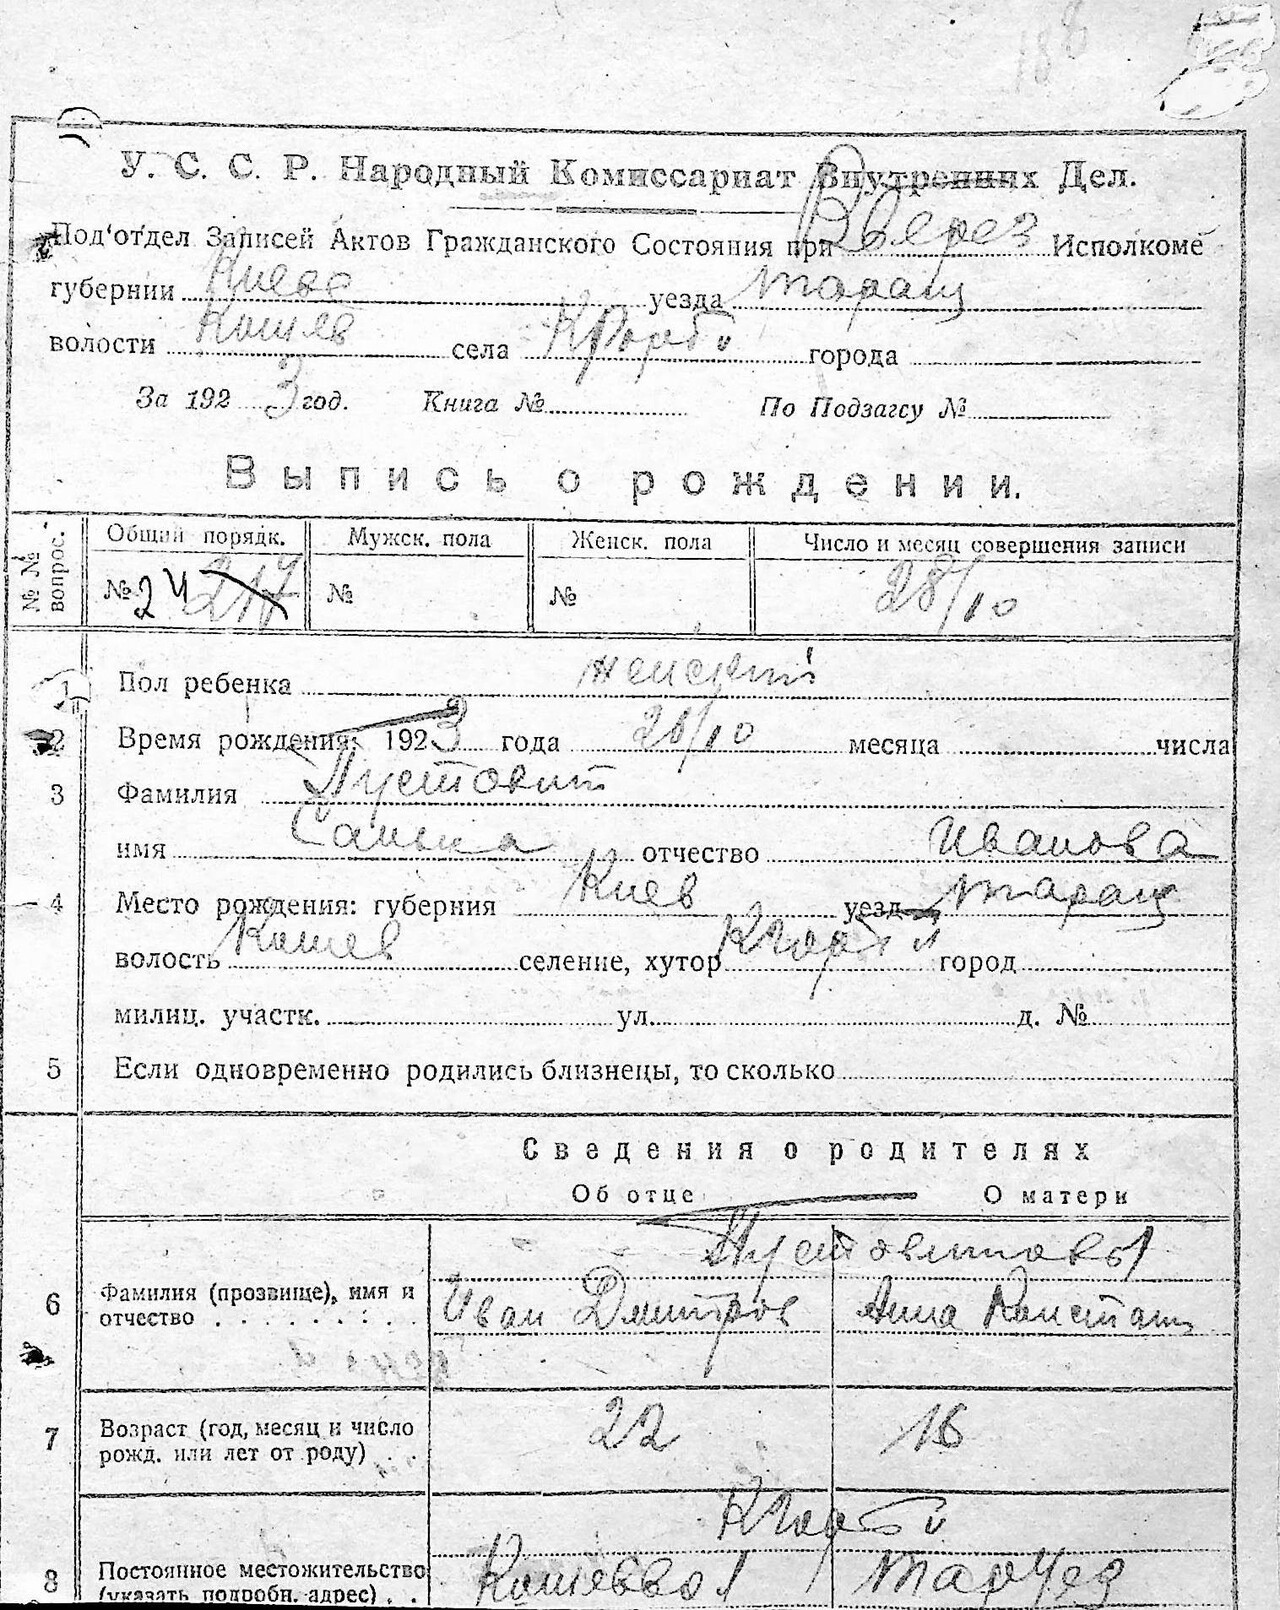 У. С. С. Р. Народный Комиссариат Внутренних Дел.
Под'отдел Записей Актов Гражданского Состояния при Исполкоме
губернии Киевс уезда таращ
волости Кошев села города
За 1923 год. Книга № По Подзагсу №
Выпись о рождении.
№№ вопрос. Общий порядк. Мужск. пола Женск. пола Число и месяц совершения записи
№ 24 217 № № 28/10
1 Пол ребенка женский
2 Время рождения: 1923 года 28/10 месяца числа
3 Фамилия Пустовит
имя Санька отчество Иванова
4 Место рождения: губерния Киев уезд таращ
волость Кошев селение, хутор город
милиц. участк. ул. д. №
5 Если одновременно родились близнецы, то сколько
Сведения о родителях
Об отце О матери
Пустовитовы
6 Фамилия (прозвище), имя и Иван Дмитров Анна Констант
отчество
7 Возраст (год, месяц и число 22 16
рожд. или лет от роду)
8 Постоянное местожительство Кошеввол Таруез
(указать подробн. адрес)